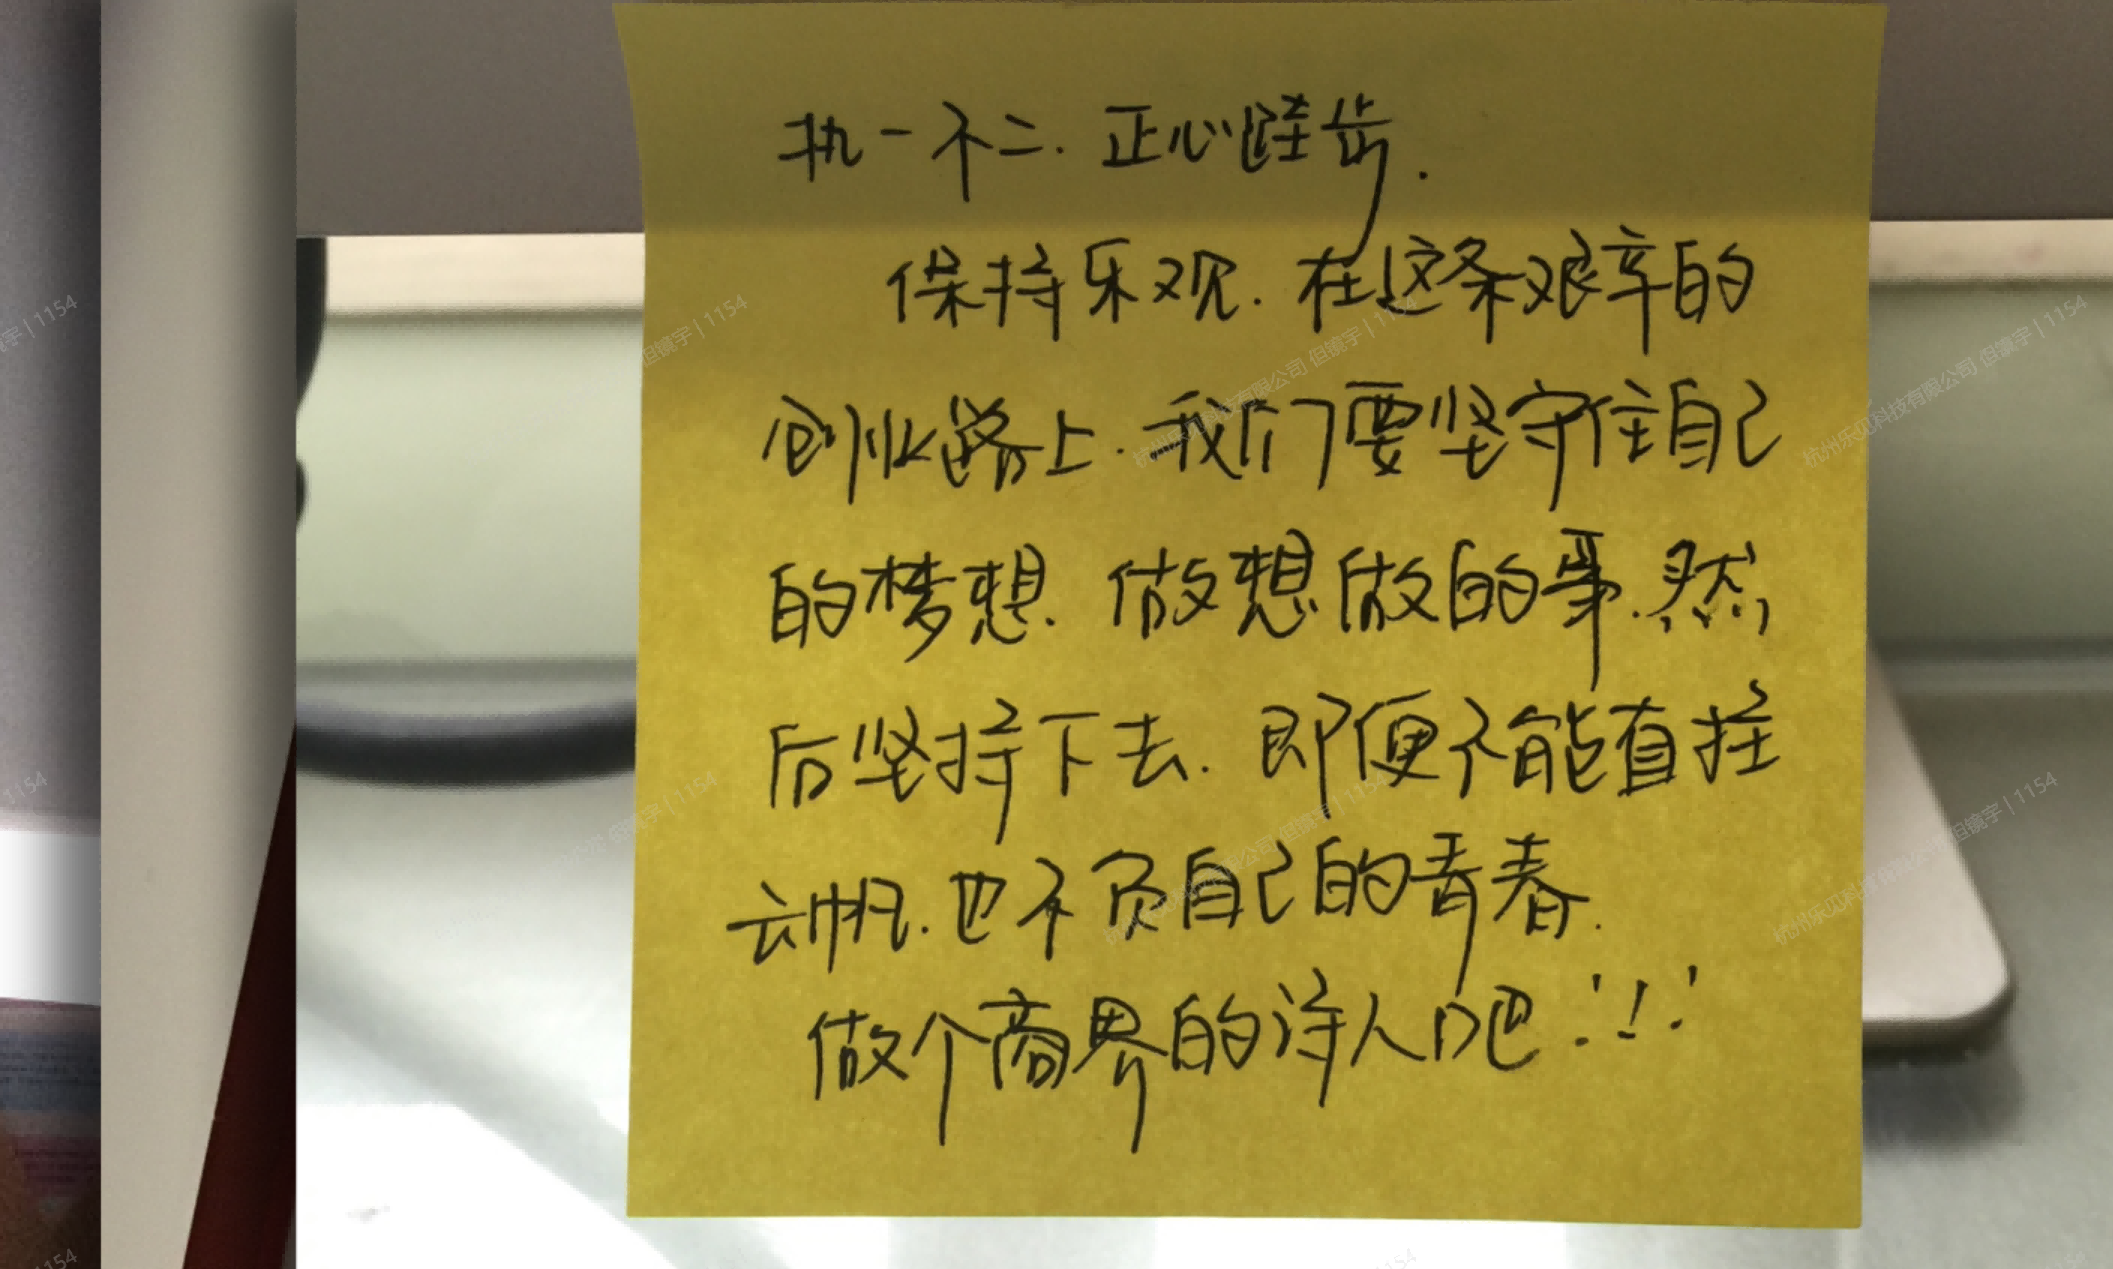 执一不二.正心跬步.
保持乐观.在这条艰辛的
创业路上.我们要坚守住自己
的梦想.做想做的事.然
后坚持下去.即便不能直挂
云帆.也不负自己的青春.
做个商界的诗人吧!!!
杭州乐见科技有限公司 但镜宇 | 1154